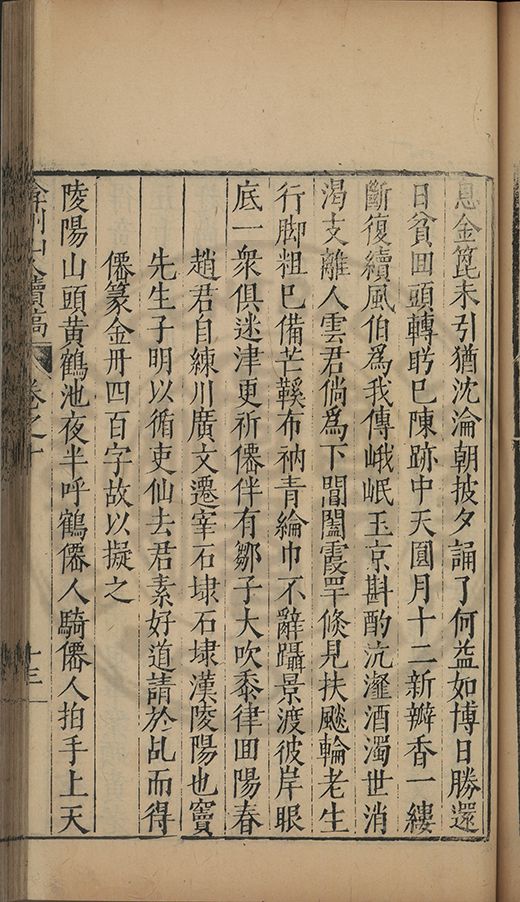 息金篦未引猶沈淪朝披夕誦了何益如博日勝還
日貧回頭轉眄已陳跡中天圓月十二新瓣香一縷
斷復續風伯為我傳峨岷玉京斟酌沆瀣酒濁世消
渴支離人雲君倘為下閶闔霞罕倏見扶飈輪老生
行脚粗已備芒鞵布衲青綸巾不辭躡景渡彼岸眼
底一衆俱迷津更祈僊伴有鄒子大吹黍律回陽春
趙君自練川廣文遷宰石埭石埭漢陵陽也竇
先生子明以循吏仙去君素好道請於乩而得
僊篆金丹四百字故以擬之
陵陽山頭黄鶴池夜半呼鶴僊人騎僊人拍手上天
弇州山人續稿 卷之十 十三